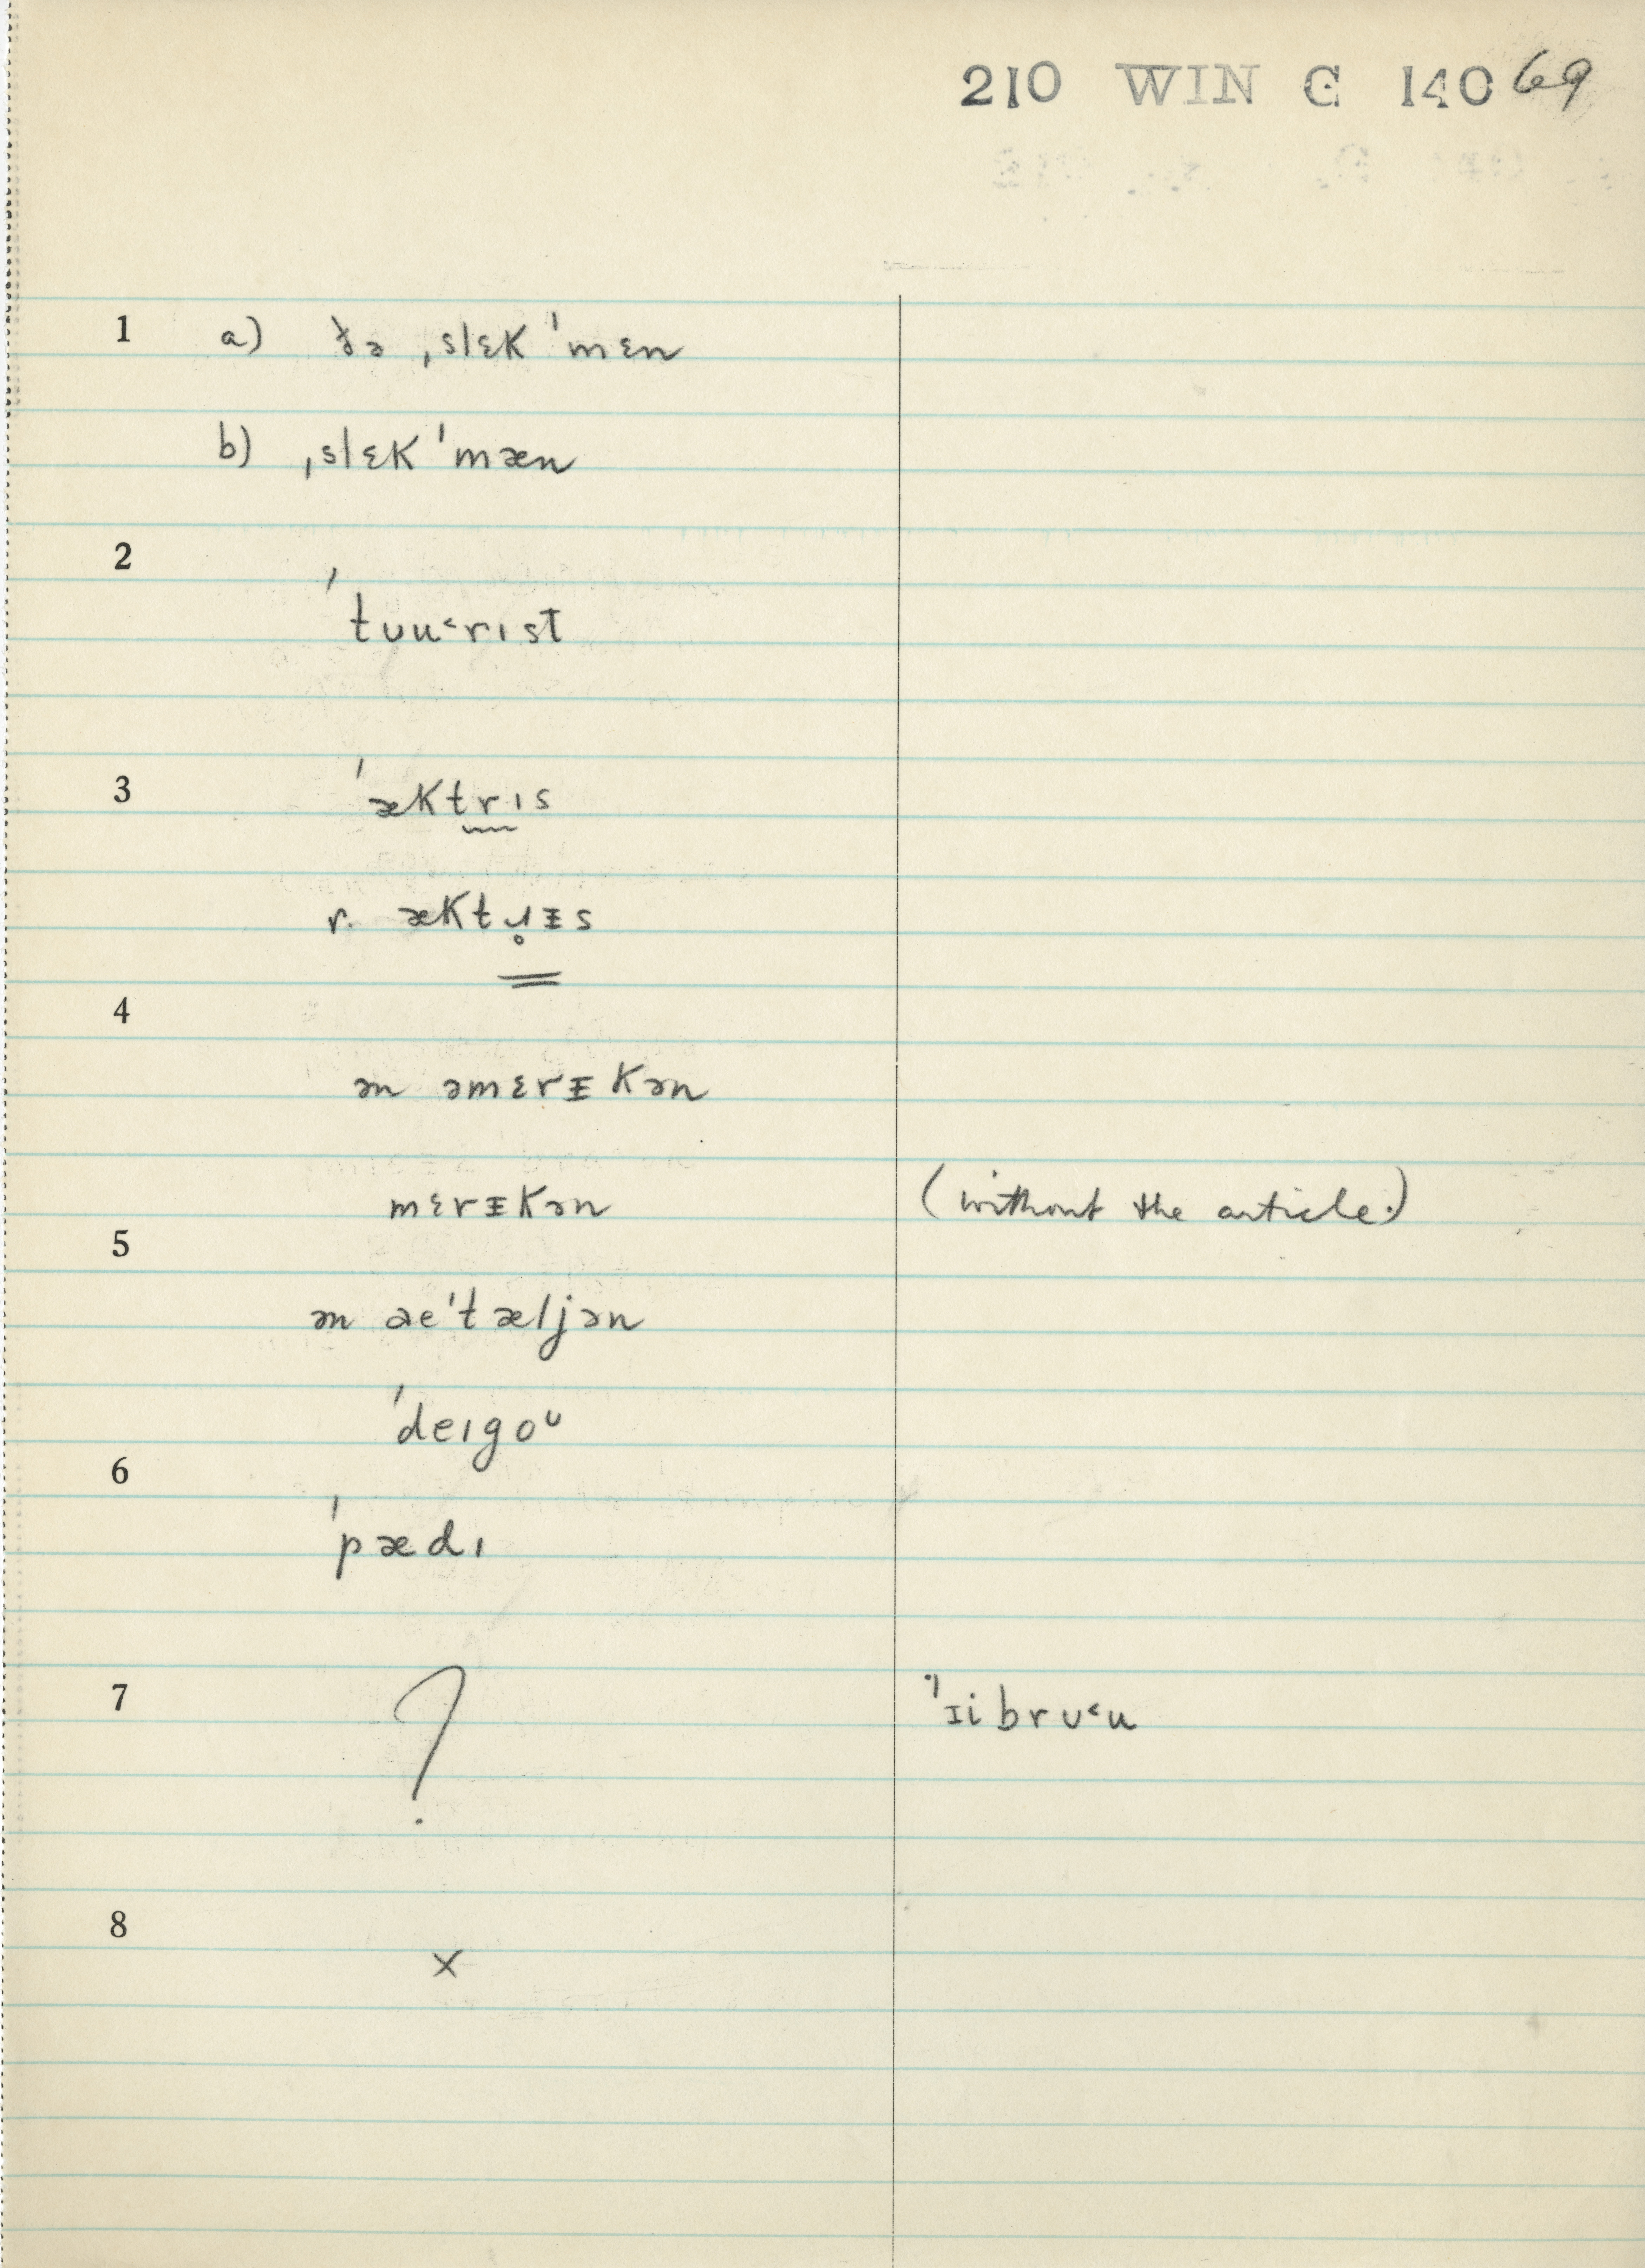 210 WIN C 140 69
1 a) ðə ˌslɛk ˈmɛn
b) ˌslɛk ˈmæn
2
ˈtʊu˂rɪst
3 ˈæktrɪs
r. æktɹ̥ᵻs
4
ən əmɛrᵻkən
mɛrᵻkən (without the article.)
5
ən aeˈtæljən
ˈdeɪgoᴜ
6
ˈpædɪ
7 ? ˈɪibrʊ˂u
8
×